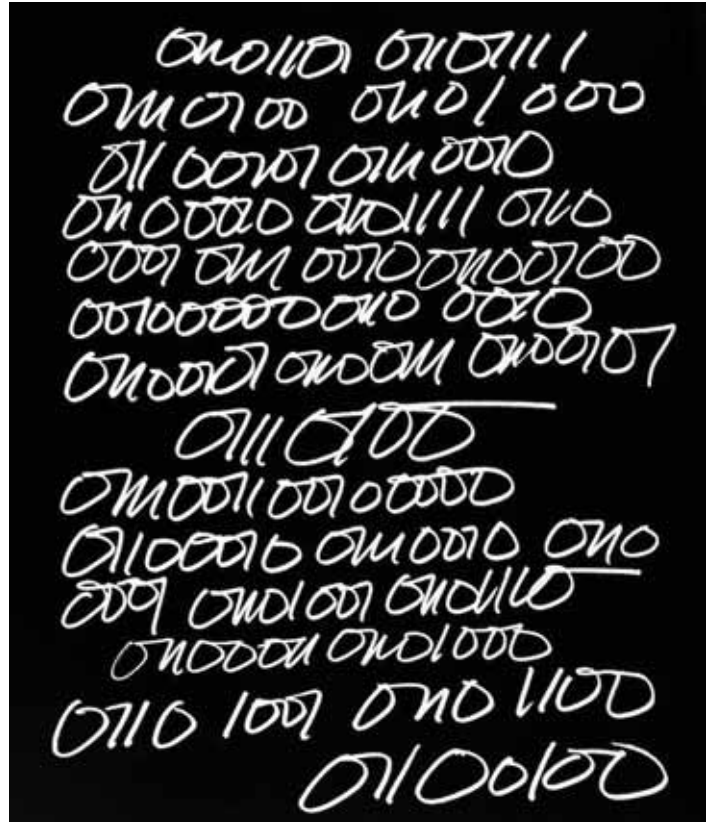 01101101 01101111
01110100 01101000
01100101 01110010
01100010 01101111 0110
0001 01110010 01100100
00100000 0110 0010
01100101 01100111 01100101
01110100
01110011 00100000
01100010 01110010 0110
0001 01101001 01101110
01100011 01101000
0110 1001 0110 1100
01100100